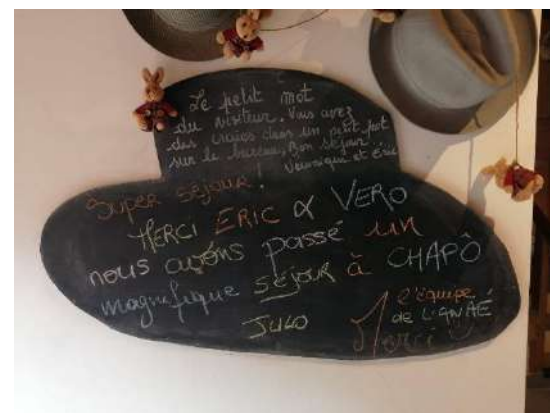 Le petit mot
du visiteur. Vous avez
des craies dans un petit pot
sur le bureau, Bon séjour.
Véronique et Eric
Super séjour !
MERCI ERIC & VERO
nous avons passé un
magnifique séjour à CHAPÔ
JULO
l'équipe
de L'
Merci